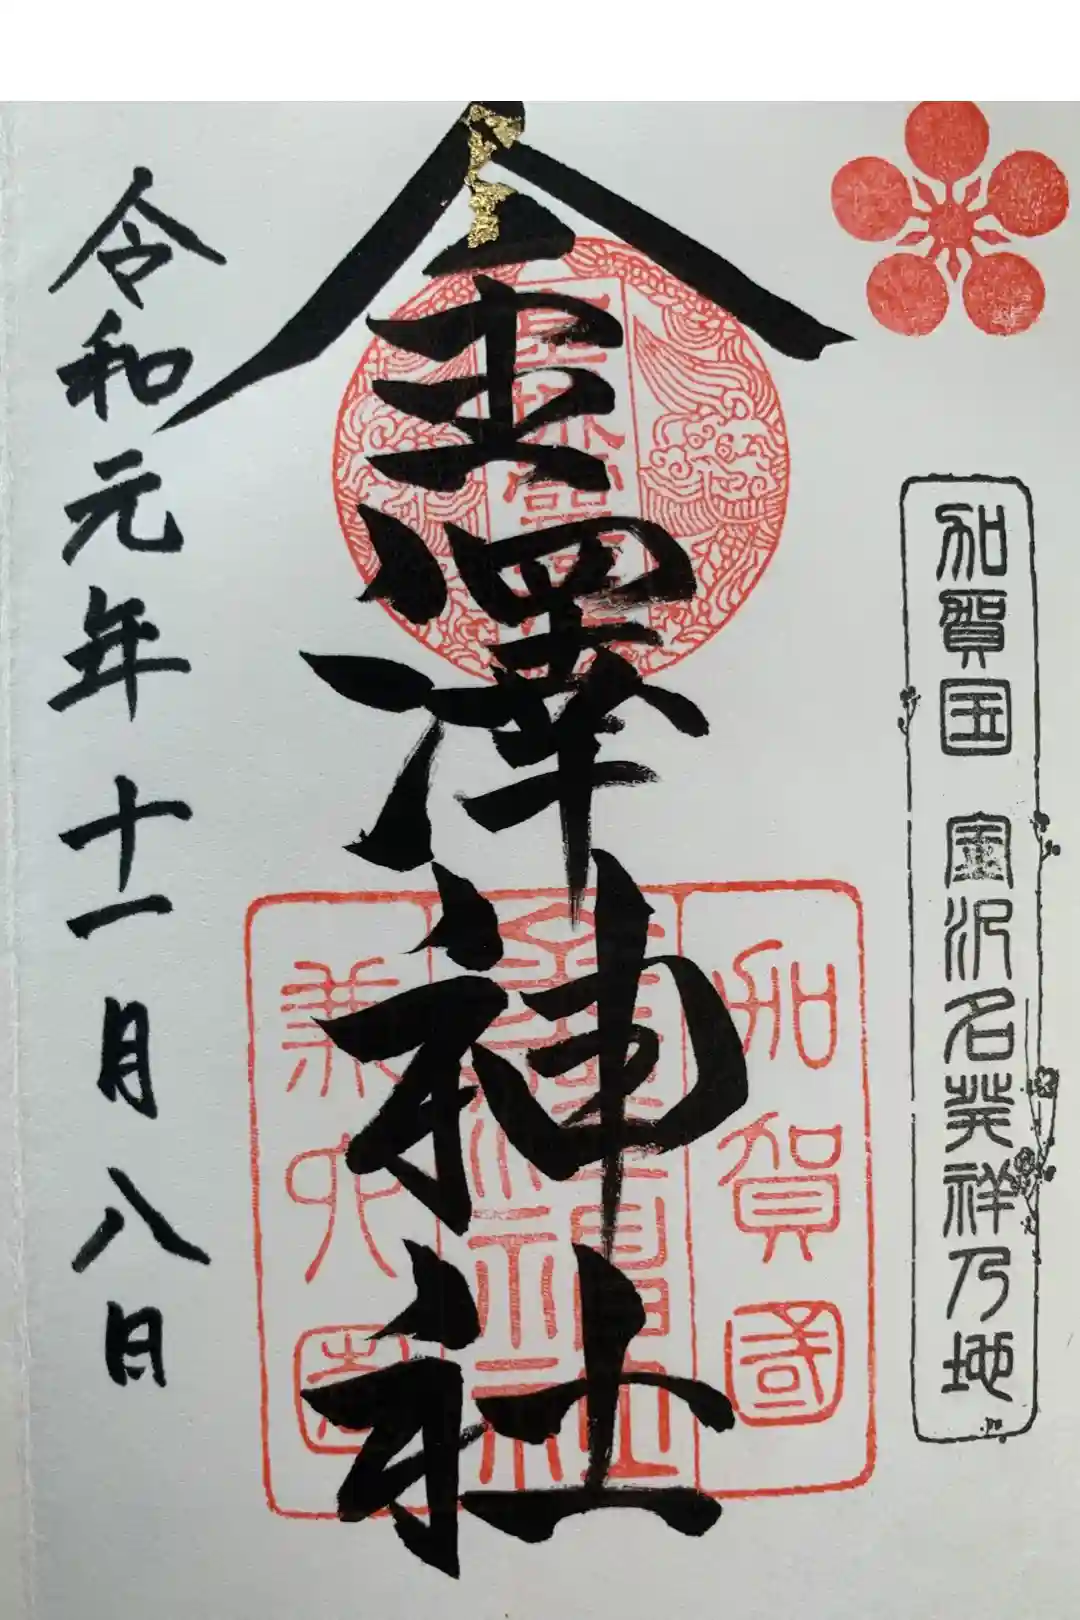 加賀国 金沢名発祥乃地
金澤神社
加賀國
兼六園
令和元年十一月八日